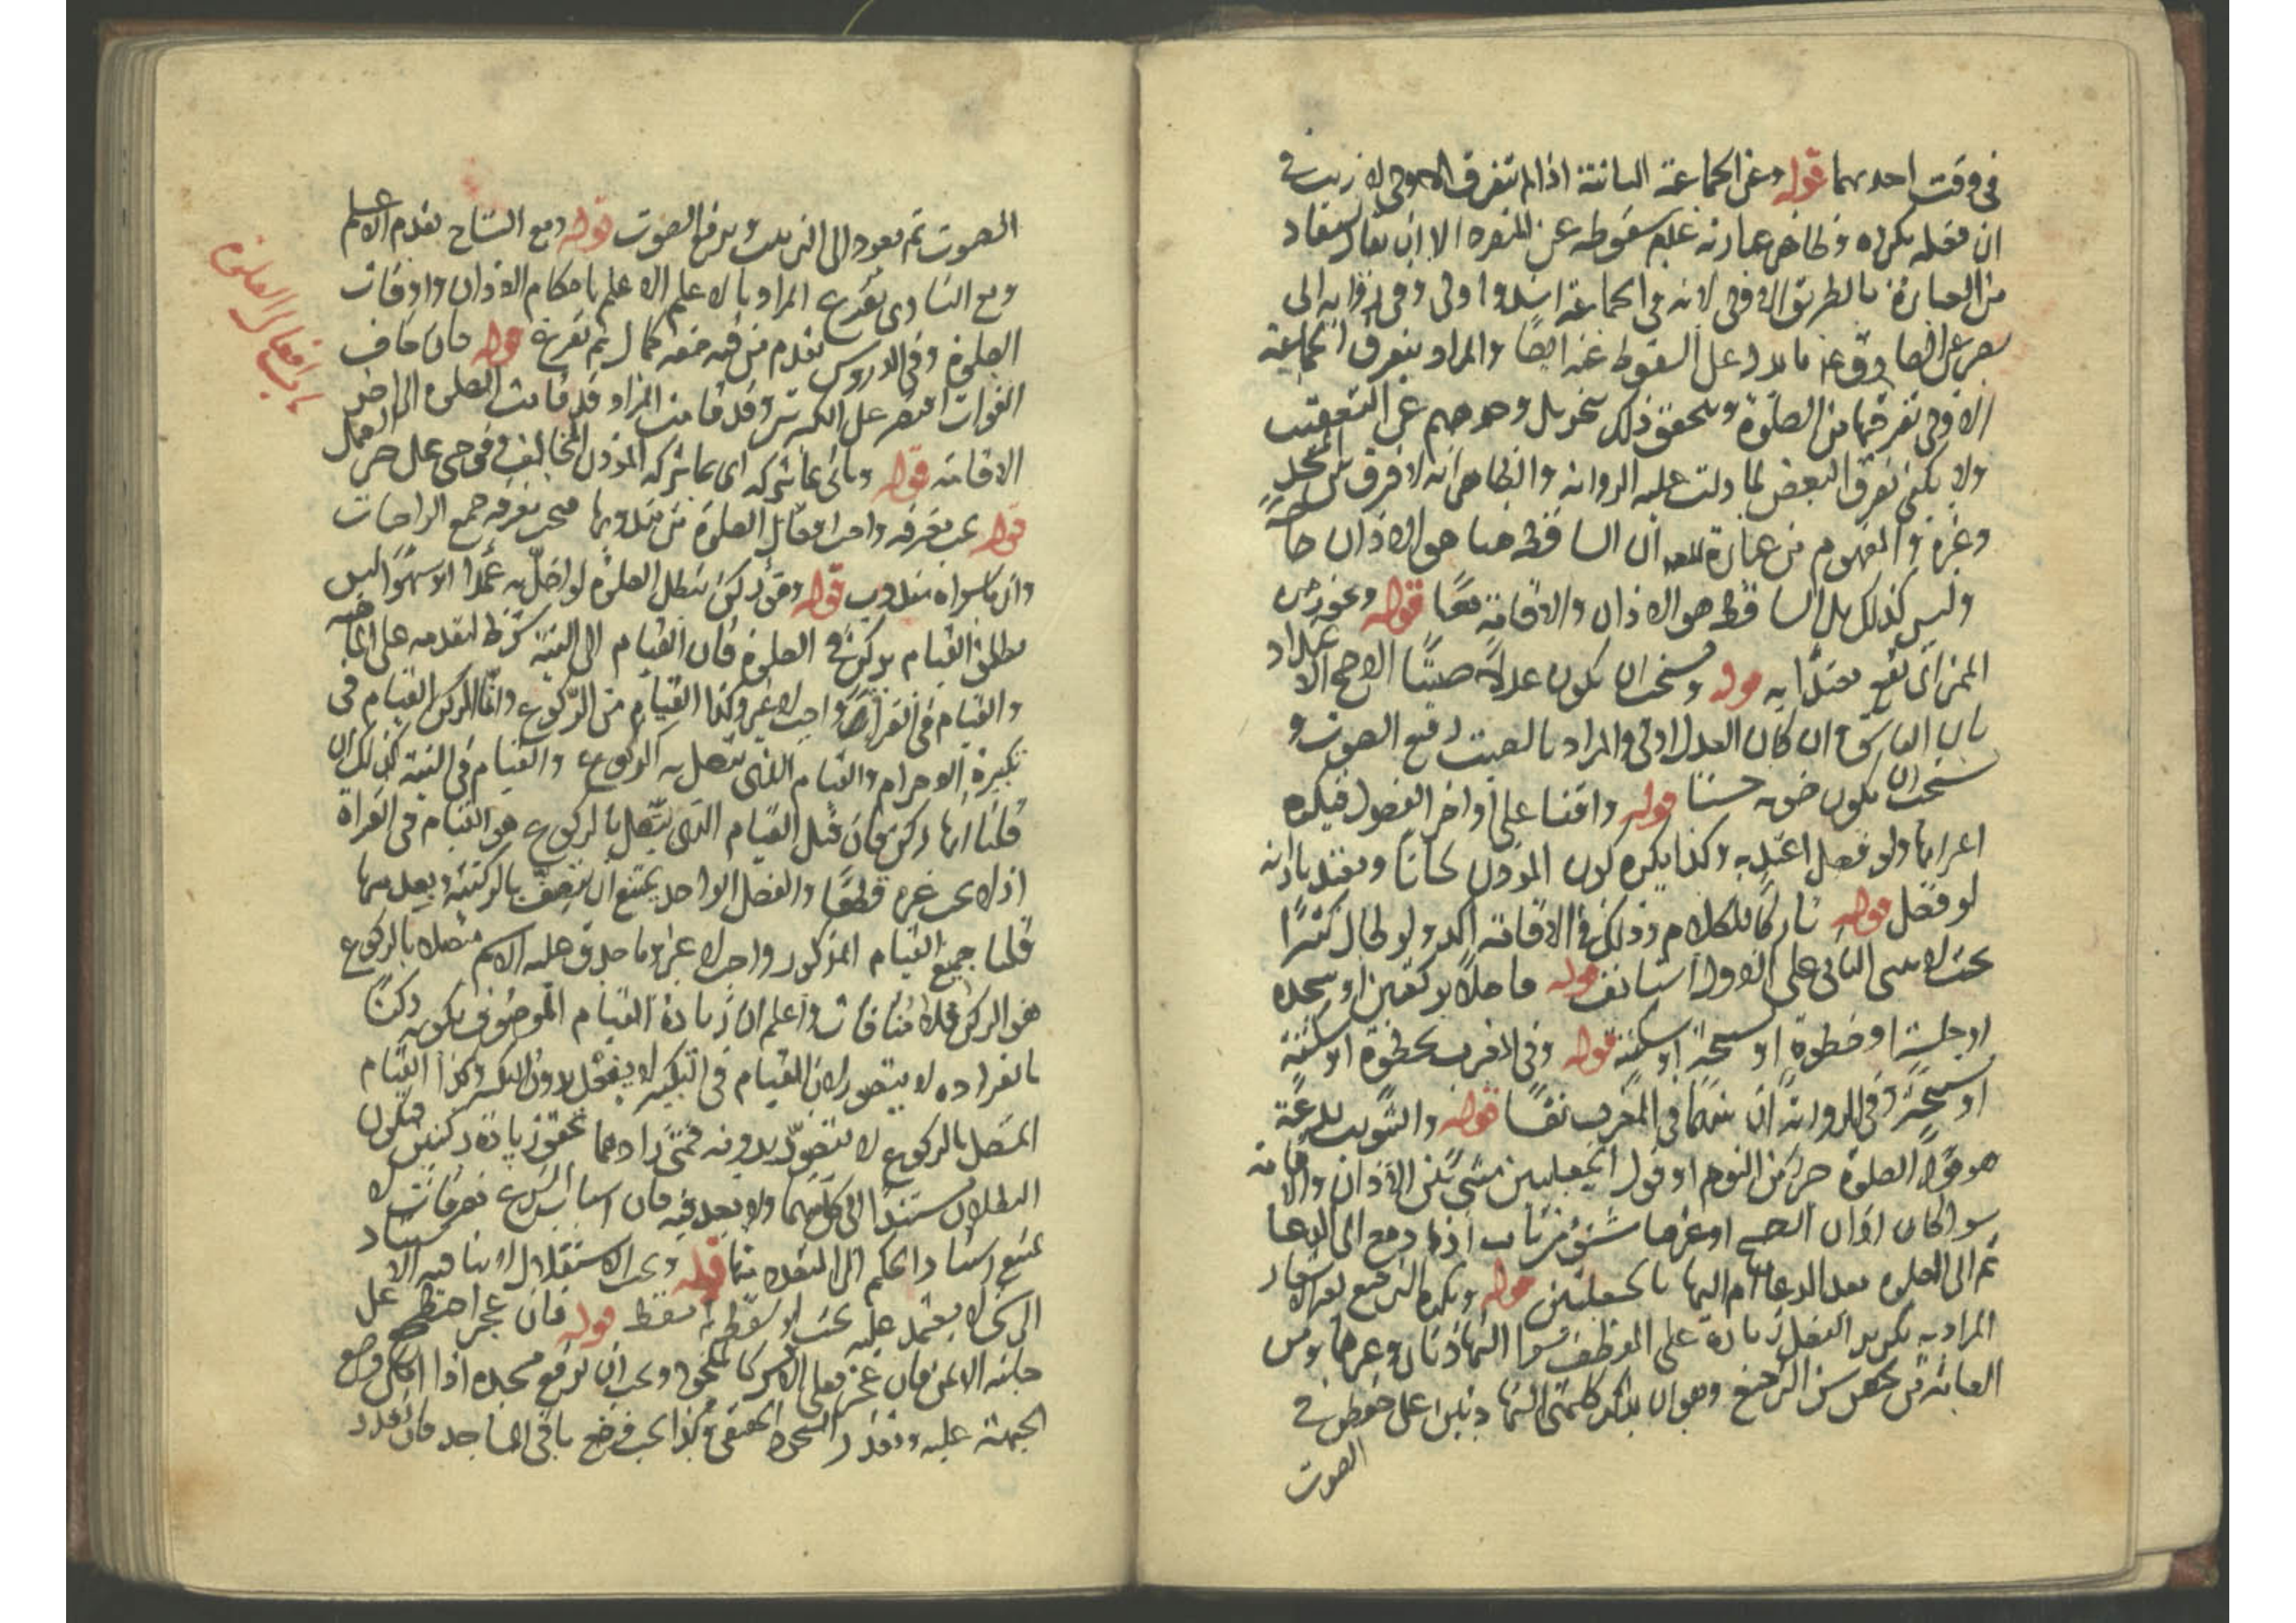 في وقت احديهما قوله وعن الجماعة الثانية اذا لم تتفرق الاولى لا ريب في
ان فعله يكره وظاهر عبارته عدم سقوطه عن المنفرد الا ان يقال يستفاد
من العبارة بالطريق الاولى لانه في الجماعة اشد واولى وفي رواية ابي
بصير عن الصادق ع ما يدل على السقوط عنه ايضا والمراد بتفرق الجماعة
الاولى تفرقها من الصلوة ويتحقق ذلك بتحويل وجوههم عن التعقيب
ولا يكفي تفرق البعض لما دلت عليه الرواية والظاهر انه لا فرق بين المسجد
وغيره والمفهوم من عبارة ان الساقط هنا هو الاذان خاصة
وليس كذلك بل الساقط هو الاذان والاقامة معا قوله ويجوز من
المميز اي يقع معتدا به قوله ويستحب ان يكون عدلا صيتا الاصح الاعتداد
باذان الفاسق وان كان العدل اولى والمراد بالصيت رفيع الصوت و
يستحب ان يكون صوته حسنا قوله واقفا على اواخر الفصول فيكره
اعرابها ولو فعل اعتد به وكذا يكره كون المؤذن لحانا ويعتد باذانه
لو فعل قوله تاركا للكلام وذلك في الاقامة اكد ولو طال كثيرا
بحيث لا يبنى الثاني على الاول استانف قوله فاصلا بركعتين او سجدة
او جلسة او خطوة او تسبيحة او سكتة قوله وفي المغرب بخطوة او سكتة
او تسبيحة وفي الرواية ان بينهما في المغرب نفسا قوله والتثويب بدعة
هو قول الصلوة خير من النوم او قول الحيعلتين مثنى بين الاذان والاقامة
سواء كان اذان الصبح او غيرها مشتق من ثاب اذا رجع الى الدعاء
ثم الى الصلوة بعد الدعاء اليها بالحيعلتين قوله ويكره الترجيع لغير الاشعار
المراد به تكرير الفصل زيادة على الموظف سواء الشهادتان وغيرها ومن
العامة من يجعل من الترجيع وهو ان يذكر كلمتي الشهادتين على خفض في
الصوت
الصوت ثم يعود الى الترتيب ويرفع الصوت قوله ومع التشاح يقدم الاعلم
ومع التساوي يقرع المراد بالاعلم الاعلم باحكام الاذان واوقات
الصلوة وفي الدروس يقدم من فيه صفة كمال ثم يقرع قوله فان خاف
الفوات اقتصر على التكبيرتين وقد قامت المراد قد قامت الصلوة الى اخر
الاقامة قوله وياتي بما يتركه اي بما يتركه المؤذن المخالف وهو حي على خير العمل
باب افعال الصلوة
قوله يجب معرفة واجب افعال الصلوة من مندوبها فيجب معرفة جميع الواجبات
وان ما سواه مندوب قوله وهو ركن تبطل الصلوة لو اخل به عمدا او سهوا ليس
مطلق القيام بركن في الصلوة فان القيام الى النية شرط لتقدمه على الماهية
والقيام في القراءة واجب لا غير وكذا القيام من الركوع وانما الركن القيام في
تكبيرة الاحرام والقيام الذي يتصل به الركوع والقيام في النية كذلك ان
قلنا انها ركن فان قيل القيام الذي يتصل بالركوع هو القيام في القراءة
اذ لا يجب غيره قطعا والفعل الواحد يمتنع ان يتصف بالركنية وبعدمها
قلنا جميع القيام المذكور واجب لا غير وما صدق عليه الاسم متصلا بالركوع
هو الركن فلا منافات واعلم ان زيادة القيام الموصوف بكونه ركنا
بانفراده لا يتصور لان القيام في التكبير لا يفعل بدون التكبير وكذا القيام
المتصل بالركوع لا يتصور بدونه فمتى زادهما تحقق زيادة ركنين فيكون
البطلان مستندا الى كليهما ولا بعد فيه فان اسباب الشرع معرفات لا
يمتنع استناد الحكم الى المتعدد منها قوله ويجب الاستقلال اي يناهيه الاستناد
الى شيء لا يعتمد عليه بحيث لو سقط به سقط قوله فان عجز اضطجع على
جانبه الايمن فان عجز فعلى الايسر كالملحود ويجب ان يرفع مسجده اذا امكن وضع
الجبهة عليه وتعذر السجود الحقيقي وكذا يجب وضع باقي المساجد فان تعذر